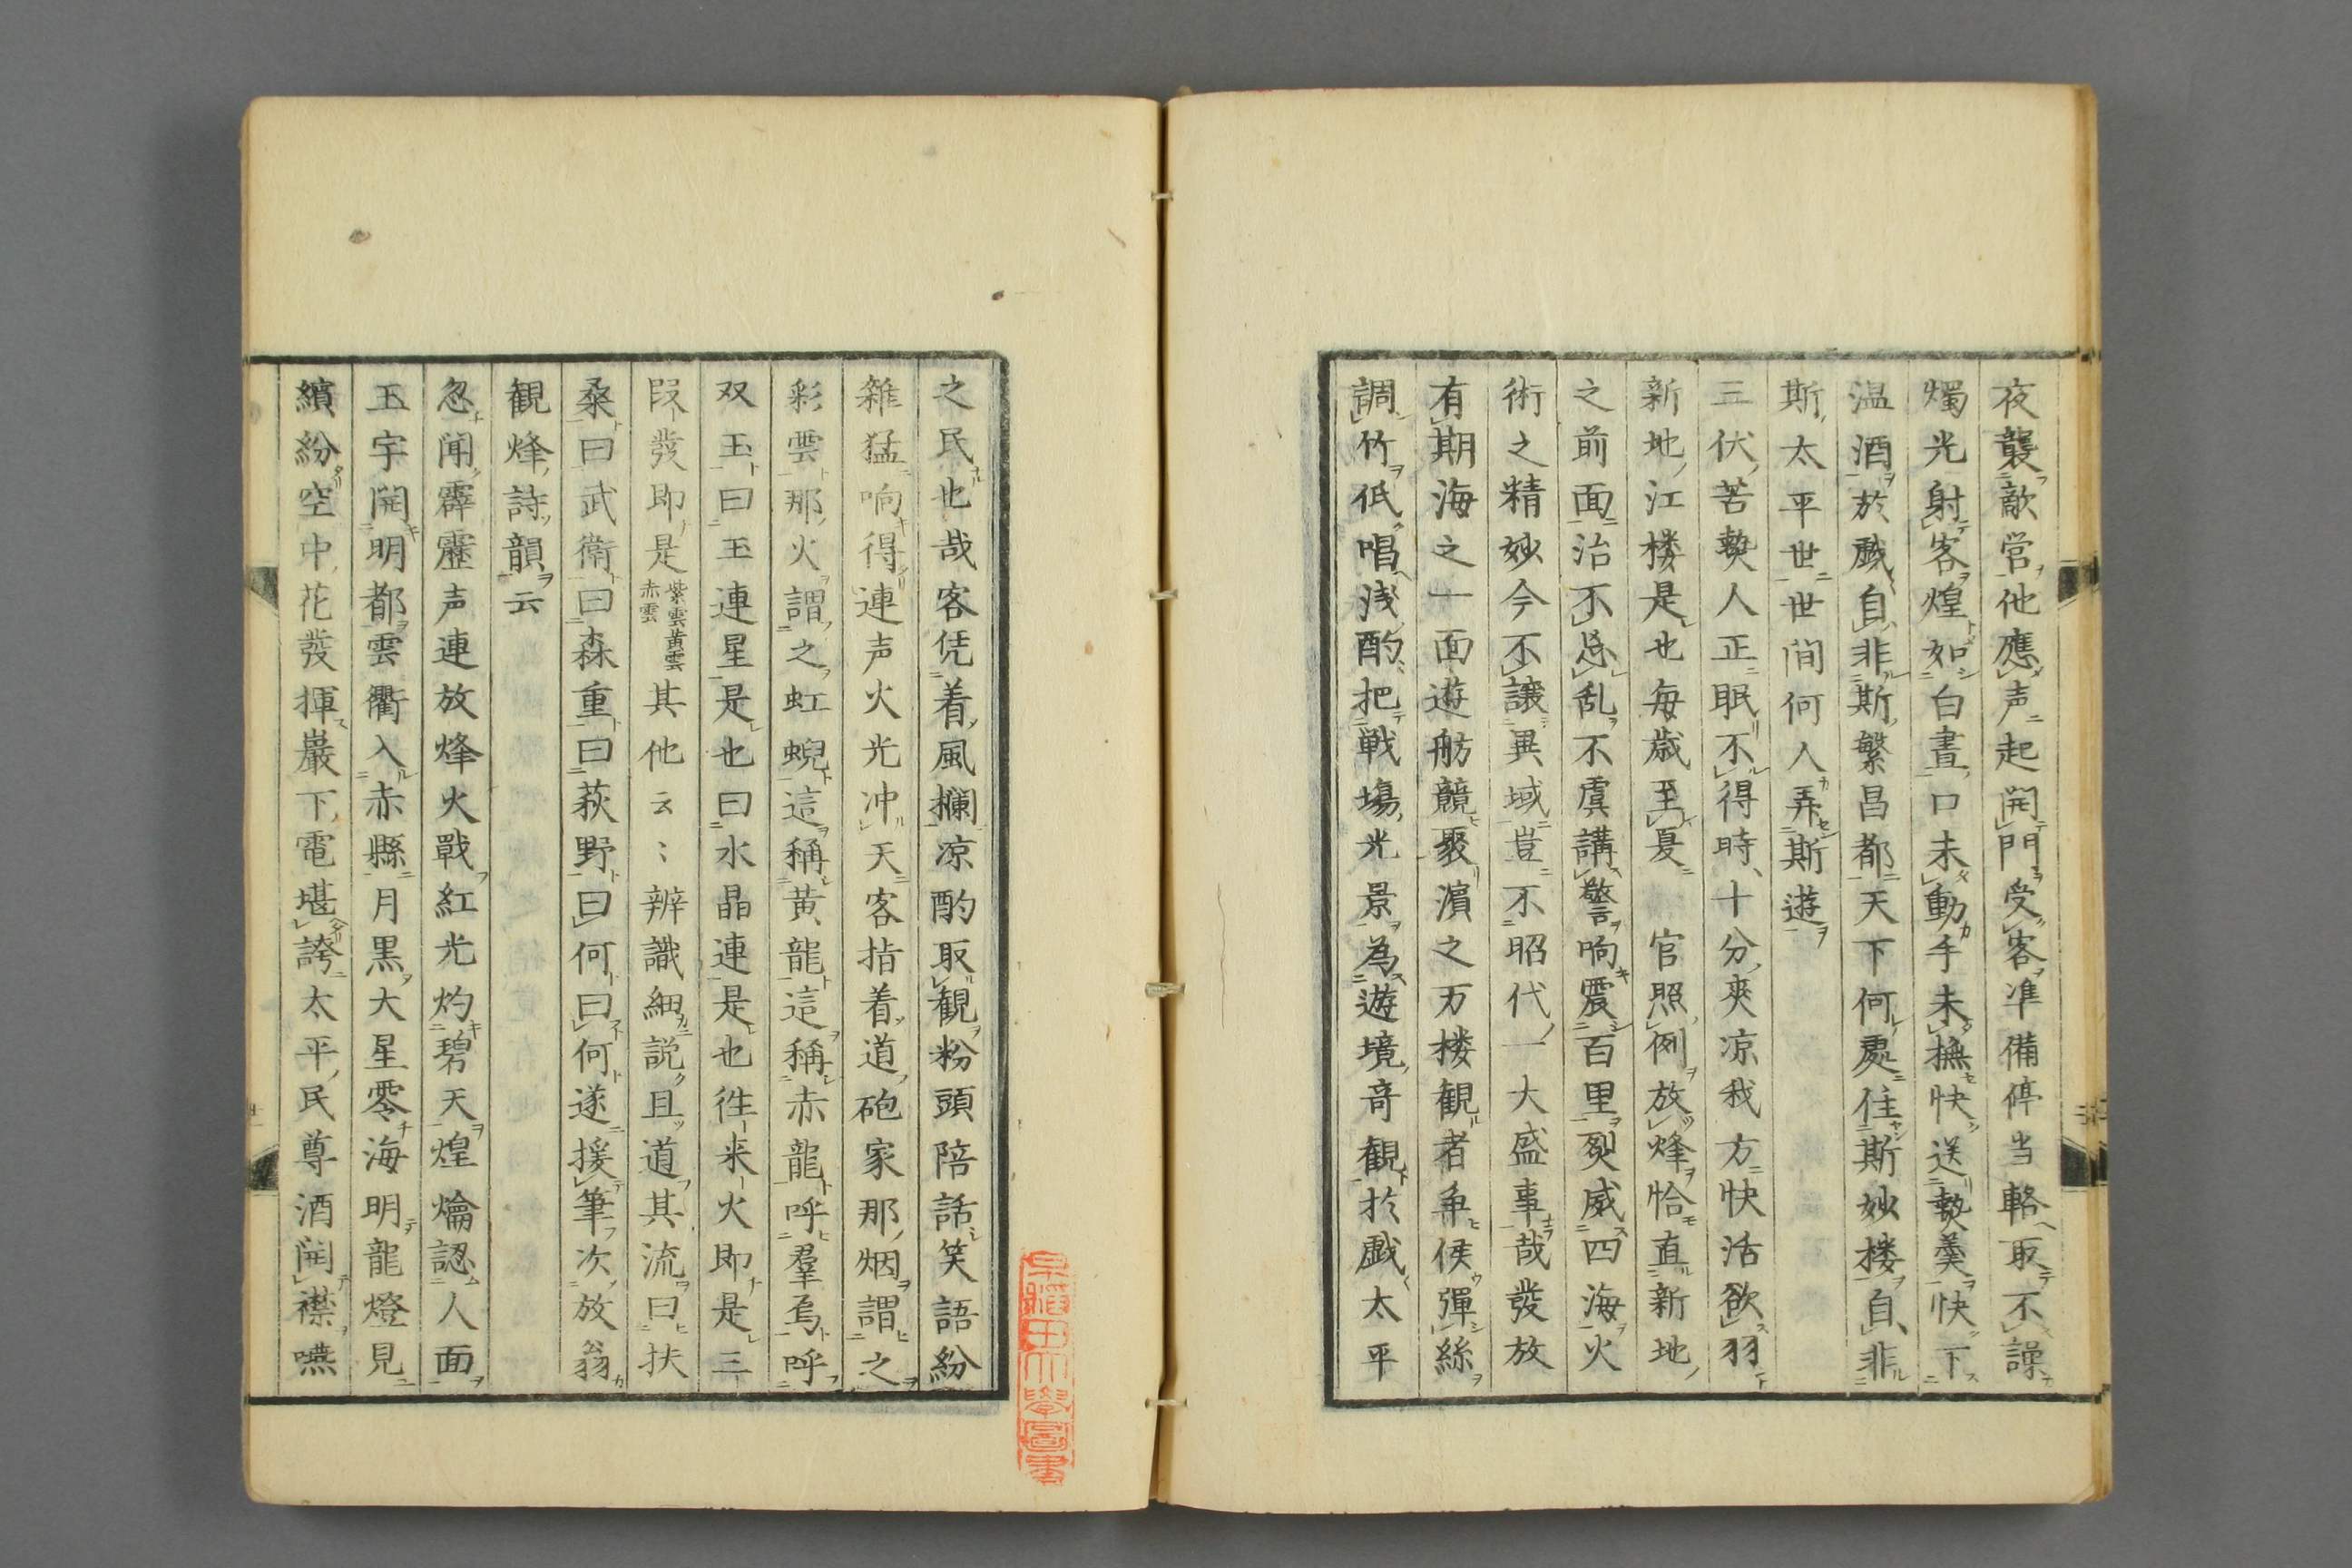 夜襲敵営他應声起開門受客準備停当輅取不譟
燭光射客煌如白晝口未動手未撫快送熱羹快下
温酒於戯自非斯繁昌都天下何處住斯妙楼自非
斯太平世世間何人弄斯遊
三伏苦熱人正眠不得時十分爽凉我方快活欲羽
新地江楼是也毎歳至夏官照例放烽恰直新地
之前面治不忘乱不虞講警响震百里烈威四海火
術之精妙今不譲異域豈不昭代一大盛事哉發放
有期海之一面遊舫競聚濱之万楼観者争候彈絲
調竹低唱浅酌把戦場光景為遊境竒観於戯太平
之民也哉客凭着風欄凉酌取観粉頭陪話笑語紛
雑猛响得連声火光冲天客指着道砲家那烟謂之
彩雲那火謂之虹蜺這稱黄龍這稱赤龍呼羣烏呼
双玉曰玉連星是也曰水晶連是也徃来火即是三
段發即是紫雲黄雲赤雲其他云〻辨識細説且道其流曰扶
桑曰武衛曰森重曰荻野曰何曰何遂援筆次放翁
観烽詩韻云
忽聞霹靂声連放烽火戰紅光灼碧天煌爚認人面
玉宇開明都雲衢入赤縣月黒大星零海明龍燈見
繽紛空中花發揮巖下電堪誇太平民尊酒開襟嚥
早稲田大學圖書